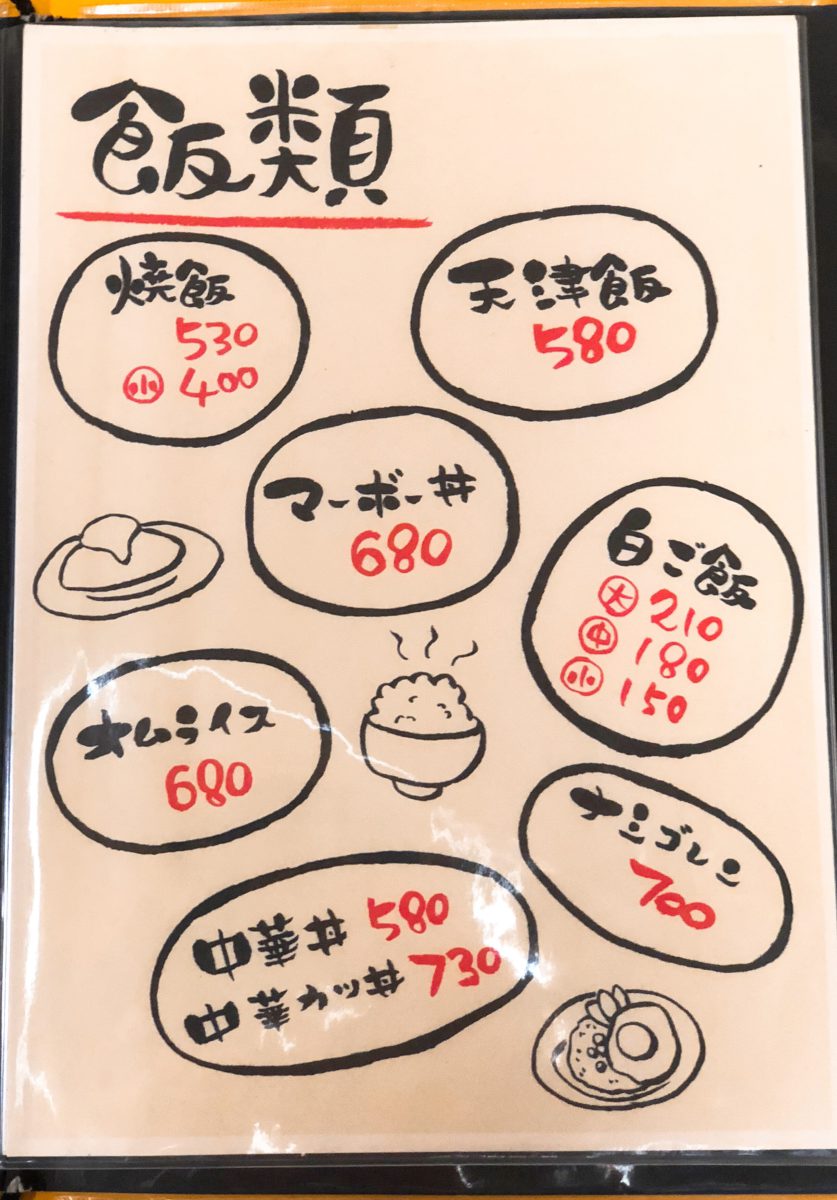 飯類
焼飯
530
小 400
天津飯
580
マーボー丼
680
白ご飯
大 210
中 180
小 150
オムライス
680
ナシゴレン
700
中華丼 580
中華カツ丼 730